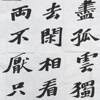 盡孤雲獨
去閑相看
兩不厭只